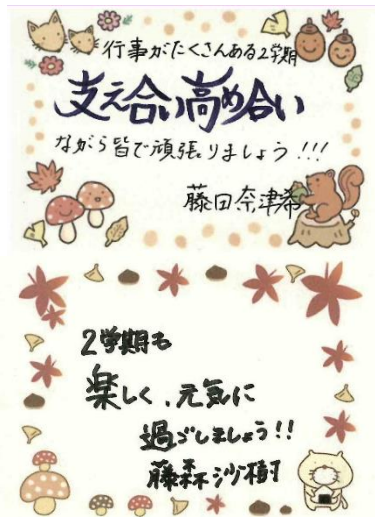 行事がたくさんある2学期
支え合い高め合い
ながら皆で頑張りましょう!!!
藤田奈津希
2学期も
楽しく、元気に
過ごしましょう!!
藤森沙樹